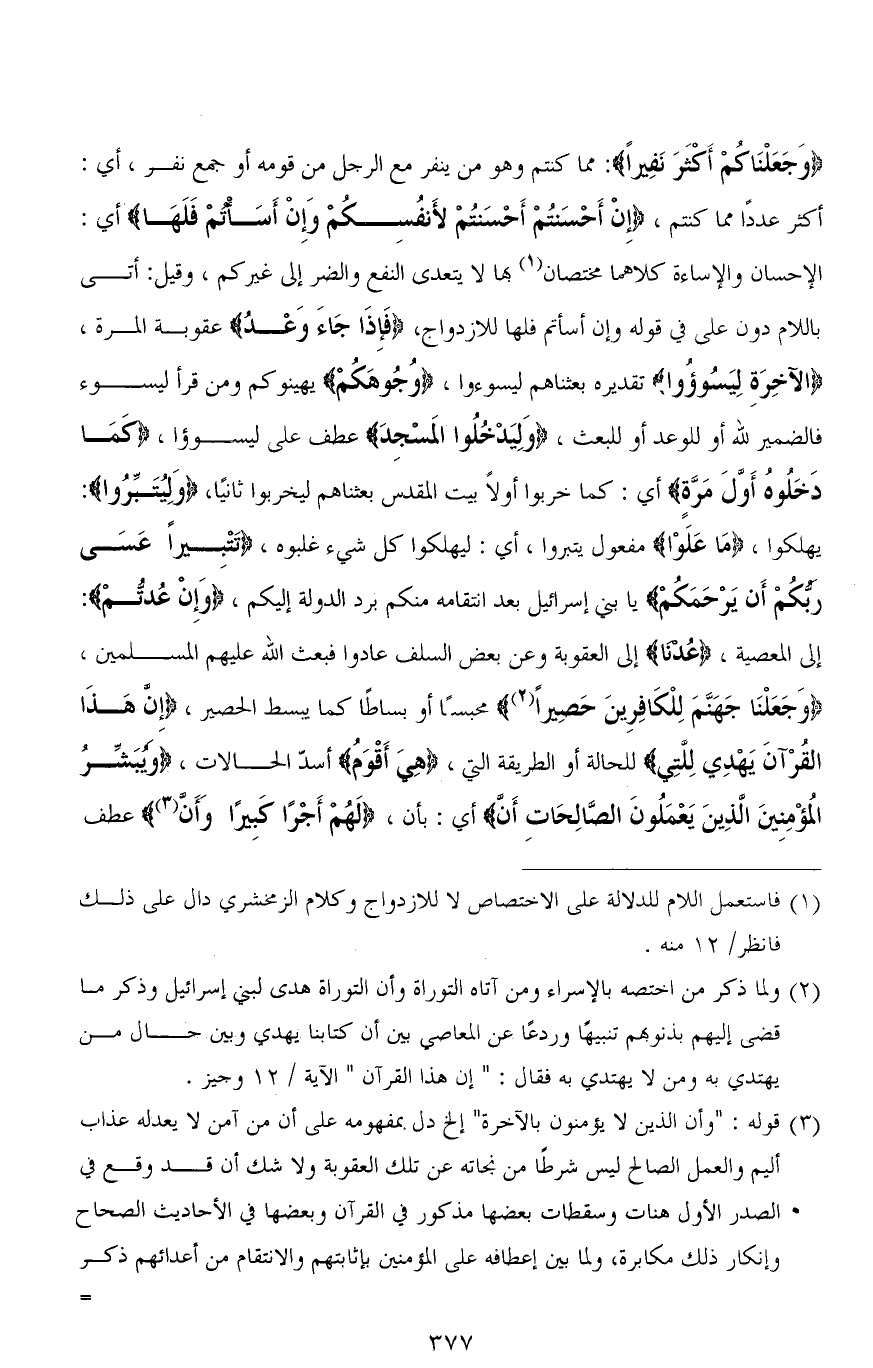 ﴿وَجَعَلْنَاكُمْ أَكْثَرَ نَفِيراً﴾: مما كنتم وهو من ينفر مع الرجل من قومه أو جمع نفر ، أي :
أكثر عددًا مما كنتم ، ﴿إِنْ أَحْسَنتُمْ أَحْسَنتُمْ لأَنفُسِكُمْ وَإِنْ أَسَأْتُمْ فَلَهَا﴾ أي :
الإحسان والإساءة كلاهما مختصان(١) بها لا يتعدى النفع والضر إلى غيركم ، وقيل: أتى
باللام دون على في قوله وإن أسأتم فلها للازدواج، ﴿فَإِذَا جَاءَ وَعْدُ﴾ عقوبة المرة ،
﴿الآخِرَةِ لِيَسُوؤُوا﴾ تقديره بعثناهم ليسوءوا ، ﴿وُجُوهَكُمْ﴾ يهينوكم ومن قرأ ليسوء
فالضمير لله أو للوعد أو للبعث ، ﴿وَلِيَدْخُلُوا الْمَسْجِدَ﴾ عطف على ليسوؤا ، ﴿كَمَا
دَخَلُوهُ أَوَّلَ مَرَّةٍ﴾ أي : كما خربوا أولاً بيت المقدس بعثناهم ليخربوا ثانيًا، ﴿وَلِيُتَبِّرُوا﴾:
يهلكوا ، ﴿مَا عَلَوْا﴾ مفعول يتبروا ، أي : ليهلكوا كل شيء غلبوه ، ﴿تَتْبِيراً عَسَى
رَبُّكُمْ أَن يَرْحَمَكُمْ﴾ يا بني إسرائيل بعد انتقامه منكم برد الدولة إليكم ، ﴿وَإِنْ عُدتُّمْ﴾:
إلى المعصية ، ﴿عُدْنَا﴾ إلى العقوبة وعن بعض السلف عادوا فبعث الله عليهم المسلمين ،
﴿وَجَعَلْنَا جَهَنَّمَ لِلْكَافِرِينَ حَصِيراً(٢)﴾ محبسًا أو بساطًا كما يبسط الحصير ، ﴿إِنَّ هَذَا
الْقُرْآنَ يَهْدِي لِلَّتِي﴾ للحالة أو الطريقة التي ، ﴿هِيَ أَقْوَمُ﴾ أسدّ الحالات ، ﴿وَيُبَشِّرُ
الْمُؤْمِنِينَ الَّذِينَ يَعْمَلُونَ الصَّالِحَاتِ أَنَّ﴾ أي : بأن ، ﴿لَهُمْ أَجْرًا كَبِيرًا وَأَنَّ(٣)﴾ عطف
(١) فاستعمل اللام للدلالة على الاختصاص لا للازدواج وكلام الزمخشري دال على ذلك
فانظر/ ١٢ منه .
(٢) ولما ذكر من اختصه بالإسراء ومن آتاه التوراة وأن التوراة هدى لبني إسرائيل وذكر ما
قضى إليهم بذنوبهم تنبيهًا وردعًا عن المعاصي بين أن كتابنا يهدي وبين حال من
يهتدي به ومن لا يهتدي به فقال : " إن هذا القرآن " الآية / ١٢ وجيز .
(٣) قوله : "وأن الذين لا يؤمنون بالآخرة" إلخ دل بمفهومه على أن من آمن لا يعدله عذاب
أليم والعمل الصالح ليس شرطًا من نجاته عن تلك العقوبة ولا شك أن قد وقع في
• الصدر الأول هنات وسقطات بعضها مذكور في القرآن وبعضها في الأحاديث الصحاح
وإنكار ذلك مكابرة، ولما بين إعطافه على المؤمنين بإثابتهم والانتقام من أعدائهم ذكر
=
٣٧٧